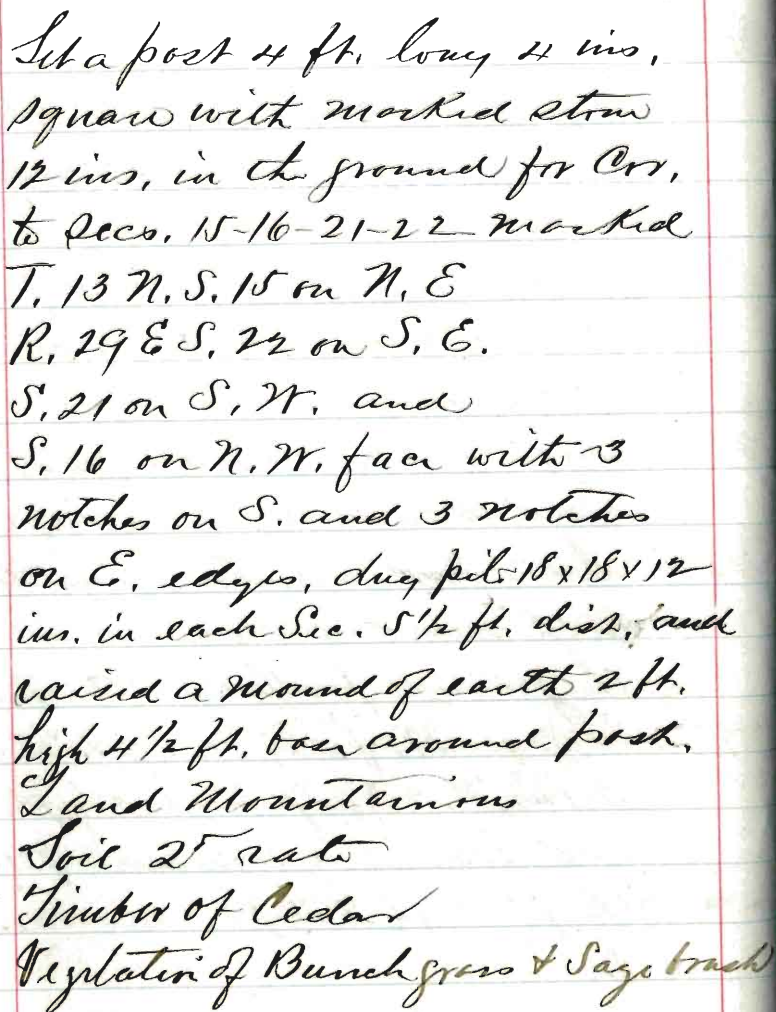 Set a post 4 ft. long 4 ins.
square with marked stone
12 ins. in the ground for Cor.
to Secs. 15-16-21-22 marked
T. 13 N. S. 15 on N. E
R. 29 E S. 22 on S. E.
S. 21 on S. W. and
S. 16 on N. W. face with 3
notches on S. and 3 notches
on E. edges, dug pits 18x18x12
ins. in each Sec. 5½ ft. dist. and
raised a mound of earth 2 ft.
high 4½ ft. base around post.
Land Mountainous
Soil rate
Timber of Cedar
Vegetation of Bunch grass & Sage brush